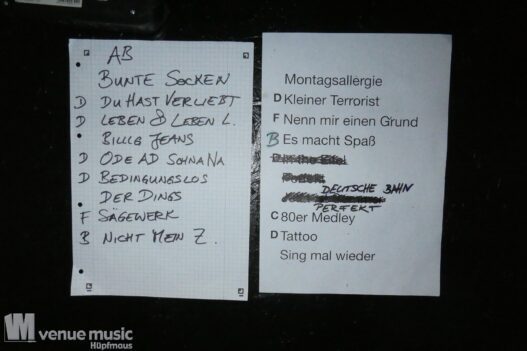 AB
BUNTE SOCKEN
D DU HAST VERLIEBT
D LEBEN & LEBEN L.
BILLIG JEANS
D ODE AD SCHNANA
D BEDINGUNGSLOS
DER DINGS
F SÄGEWERK
B NICHT MEIN Z.
Montagsallergie
D Kleiner Terrorist
F Nenn mir einen Grund
B Es macht Spaß
DEUTSCHE BAHN
PERFEKT
C 80er Medley
D Tattoo
Sing mal wieder
venue music
Hüpfmaus